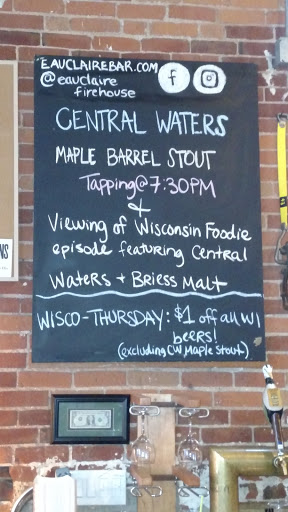 EAUCLAIREBAR.COM
@eauclaire
firehouse
f
CENTRAL WATERS
MAPLE BARREL STOUT
Tapping@7:30PM
&
Viewing of Wisconsin Foodie
episode featuring Central
Waters + Briess Malt
WISCO-THURSDAY: $1 off all WI
beers!
(excluding CW Maple Stout)